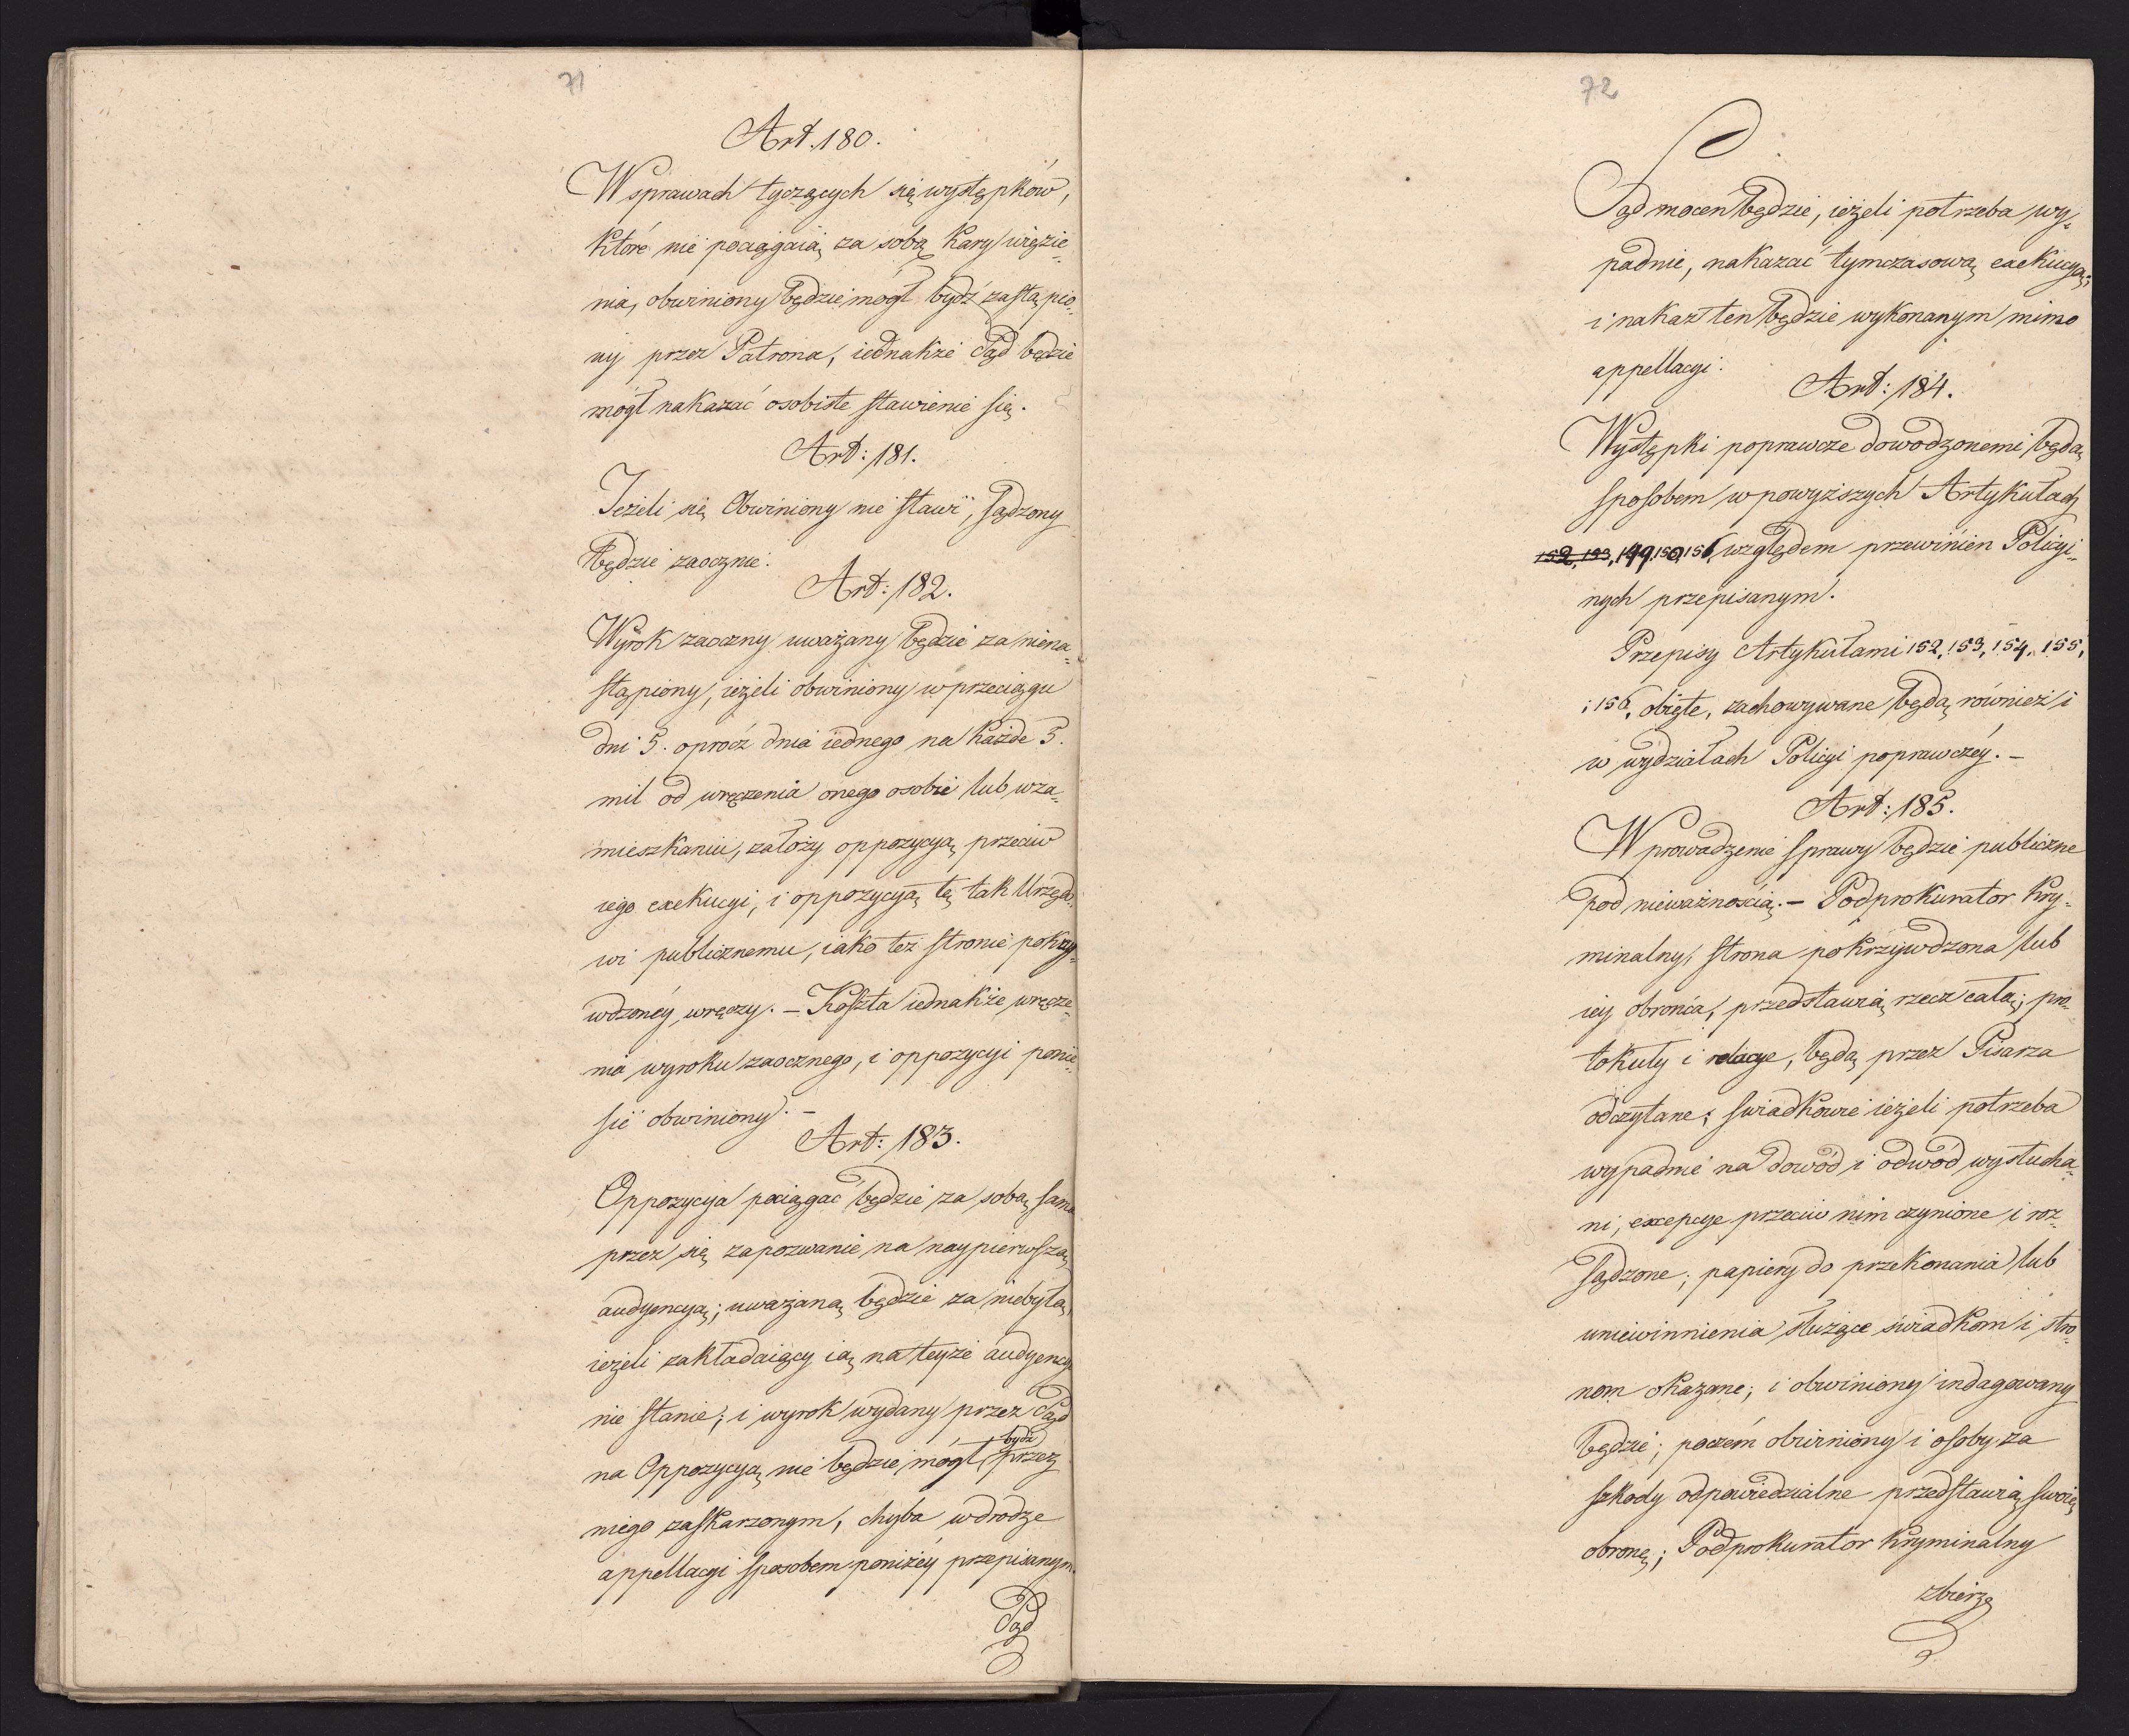 71
Art. 180.
W sprawach tyczących się występków,
które nie pociągaią za sobą kary więzie„
nia, obwiniony będzie mógł bydź zastąpio„
ny przez Patrona, iednakże Sąd będzie
mógł nakazać osobiste stawienie się.
Art: 181.
Jeżeli się Obwiniony nie stawi, sądzony
będzie zaocznie.
Art: 182.
Wyrok zaoczny uważany będzie za niena„
stąpiony, ieżeli obwiniony w przeciągu
dni 5. oprócz dnia iednego na każde 5.
mil od wręczenia onego osobie lub w za„
mieszkaniu, założy oppozycyą przeciw
iego exekucyi, i oppozycyą tę tak Urzędo„
wi publicznemu, iako też stronie pokrzy„
wdzonéy, wręczy. – Koszta iednakże wręcze„
nia wyroku zaocznego, i oppozycyi ponie„
sie obwiniony. –
Art: 183.
Oppozycyia pociągać będzie za sobą sama
przez się zapozwanie na naypierwszą
audyencyą; uważaną będzie za niebyłą,
ieżeli zakładaiący ią na teyże audyencyi
nie stanie; i wyrok wydany przez Sąd
bydź
na Oppozycyą nie będzie mógł przez
niego zaskarzonym, chyba w drodze
appellacyi sposobem poniżéy przepisanym.
Sąd
72
Sąd mocen będzie, ieżeli potrzeba wy„
padnie, nakazać tymczasową exekucyą;
i nakaz ten będzie wykonanym mimo
appellacyi.
Art: 184.
Występki poprawcze dowodzonemi będą
sposobem w powyższych Artykułach
152, 153, 149, 150, 156 względem przewinien Policyi„
nych przepisanym.
Przepisy Artykułami 152, 153, 154, 155,
i 156, obięte, zachowywane będą również i
w wydziałach Policyi poprawczéy. –
Art: 185.
W prowadzenie sprawy będzie publiczne
pod nieważnością. – Podprokurator Kry„
minalny, strona pokrzywdzona lub
iey obrońca, przedstawią rzecz całą; pro„
tokuły i relacye, będą przez Pisarza
odczytane; swiadkowie ieżeli potrzeba
wypadnie na dowód i odwód wysłucha„
ni, excepcye przeciw nim czynione i roz„
sądzone; papiery do przekonania lub
uniewinnienia służące swiadkom i stro„
nom okazane; i obwiniony indagowany
będzie; poczém obwiniony i osoby za
szkody odpowiedzialne przedstawią swoię
obronę; Podprokurator Kryminalny
zbierze